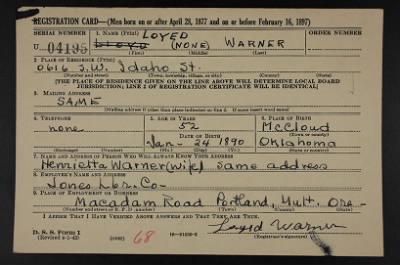 REGISTRATION CARD—(Men born on or after April 28, 1877 and on or before February 16, 1897)
SERIAL NUMBER 1. NAME (Print) ORDER NUMBER
LOYED
U 04195 LLOYD (NONE) WARNER
(First) (Middle) (Last)
2. PLACE OF RESIDENCE (Print)
0616 S.W. Idaho St.
(Number and street) (Town, township, village, or city) (County) (State)
[THE PLACE OF RESIDENCE GIVEN ON THE LINE ABOVE WILL DETERMINE LOCAL BOARD
JURISDICTION; LINE 2 OF REGISTRATION CERTIFICATE WILL BE IDENTICAL]
3. MAILING ADDRESS
SAME
[Mailing address if other than place indicated on line 2. If same insert word same]
4. TELEPHONE 5. AGE IN YEARS 6. PLACE OF BIRTH
none 52 McCloud
DATE OF BIRTH (Town or county)
Jan - 24 1890 Oklahoma
(Mo.) (Day) (Yr.) (State or country)
7. NAME AND ADDRESS OF PERSON WHO WILL ALWAYS KNOW YOUR ADDRESS
Henrietta Warner (wife) same address
8. EMPLOYER'S NAME AND ADDRESS
Jones Lbr. Co-
9. PLACE OF EMPLOYMENT OR BUSINESS
Macadam Road Portland, Mult. Ore-
(Number and street or R. F. D. number) (Town) (County) (State)
I AFFIRM THAT I HAVE VERIFIED ABOVE ANSWERS AND THAT THEY ARE TRUE.
D. S. S. Form 1 Loyed Warner
(Revised 4-1-42) (over) 68 (Registrant's signature)